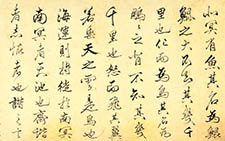 北冥有魚其名為鯤
鯤之大不知其幾千
里也化而為鳥其名為
鵬之背不知其幾
千里也怒而飛其翼
若垂天之雲是鳥也
海運則將徙於南冥
南冥者天池也齊諧
者志怪者也諧之言